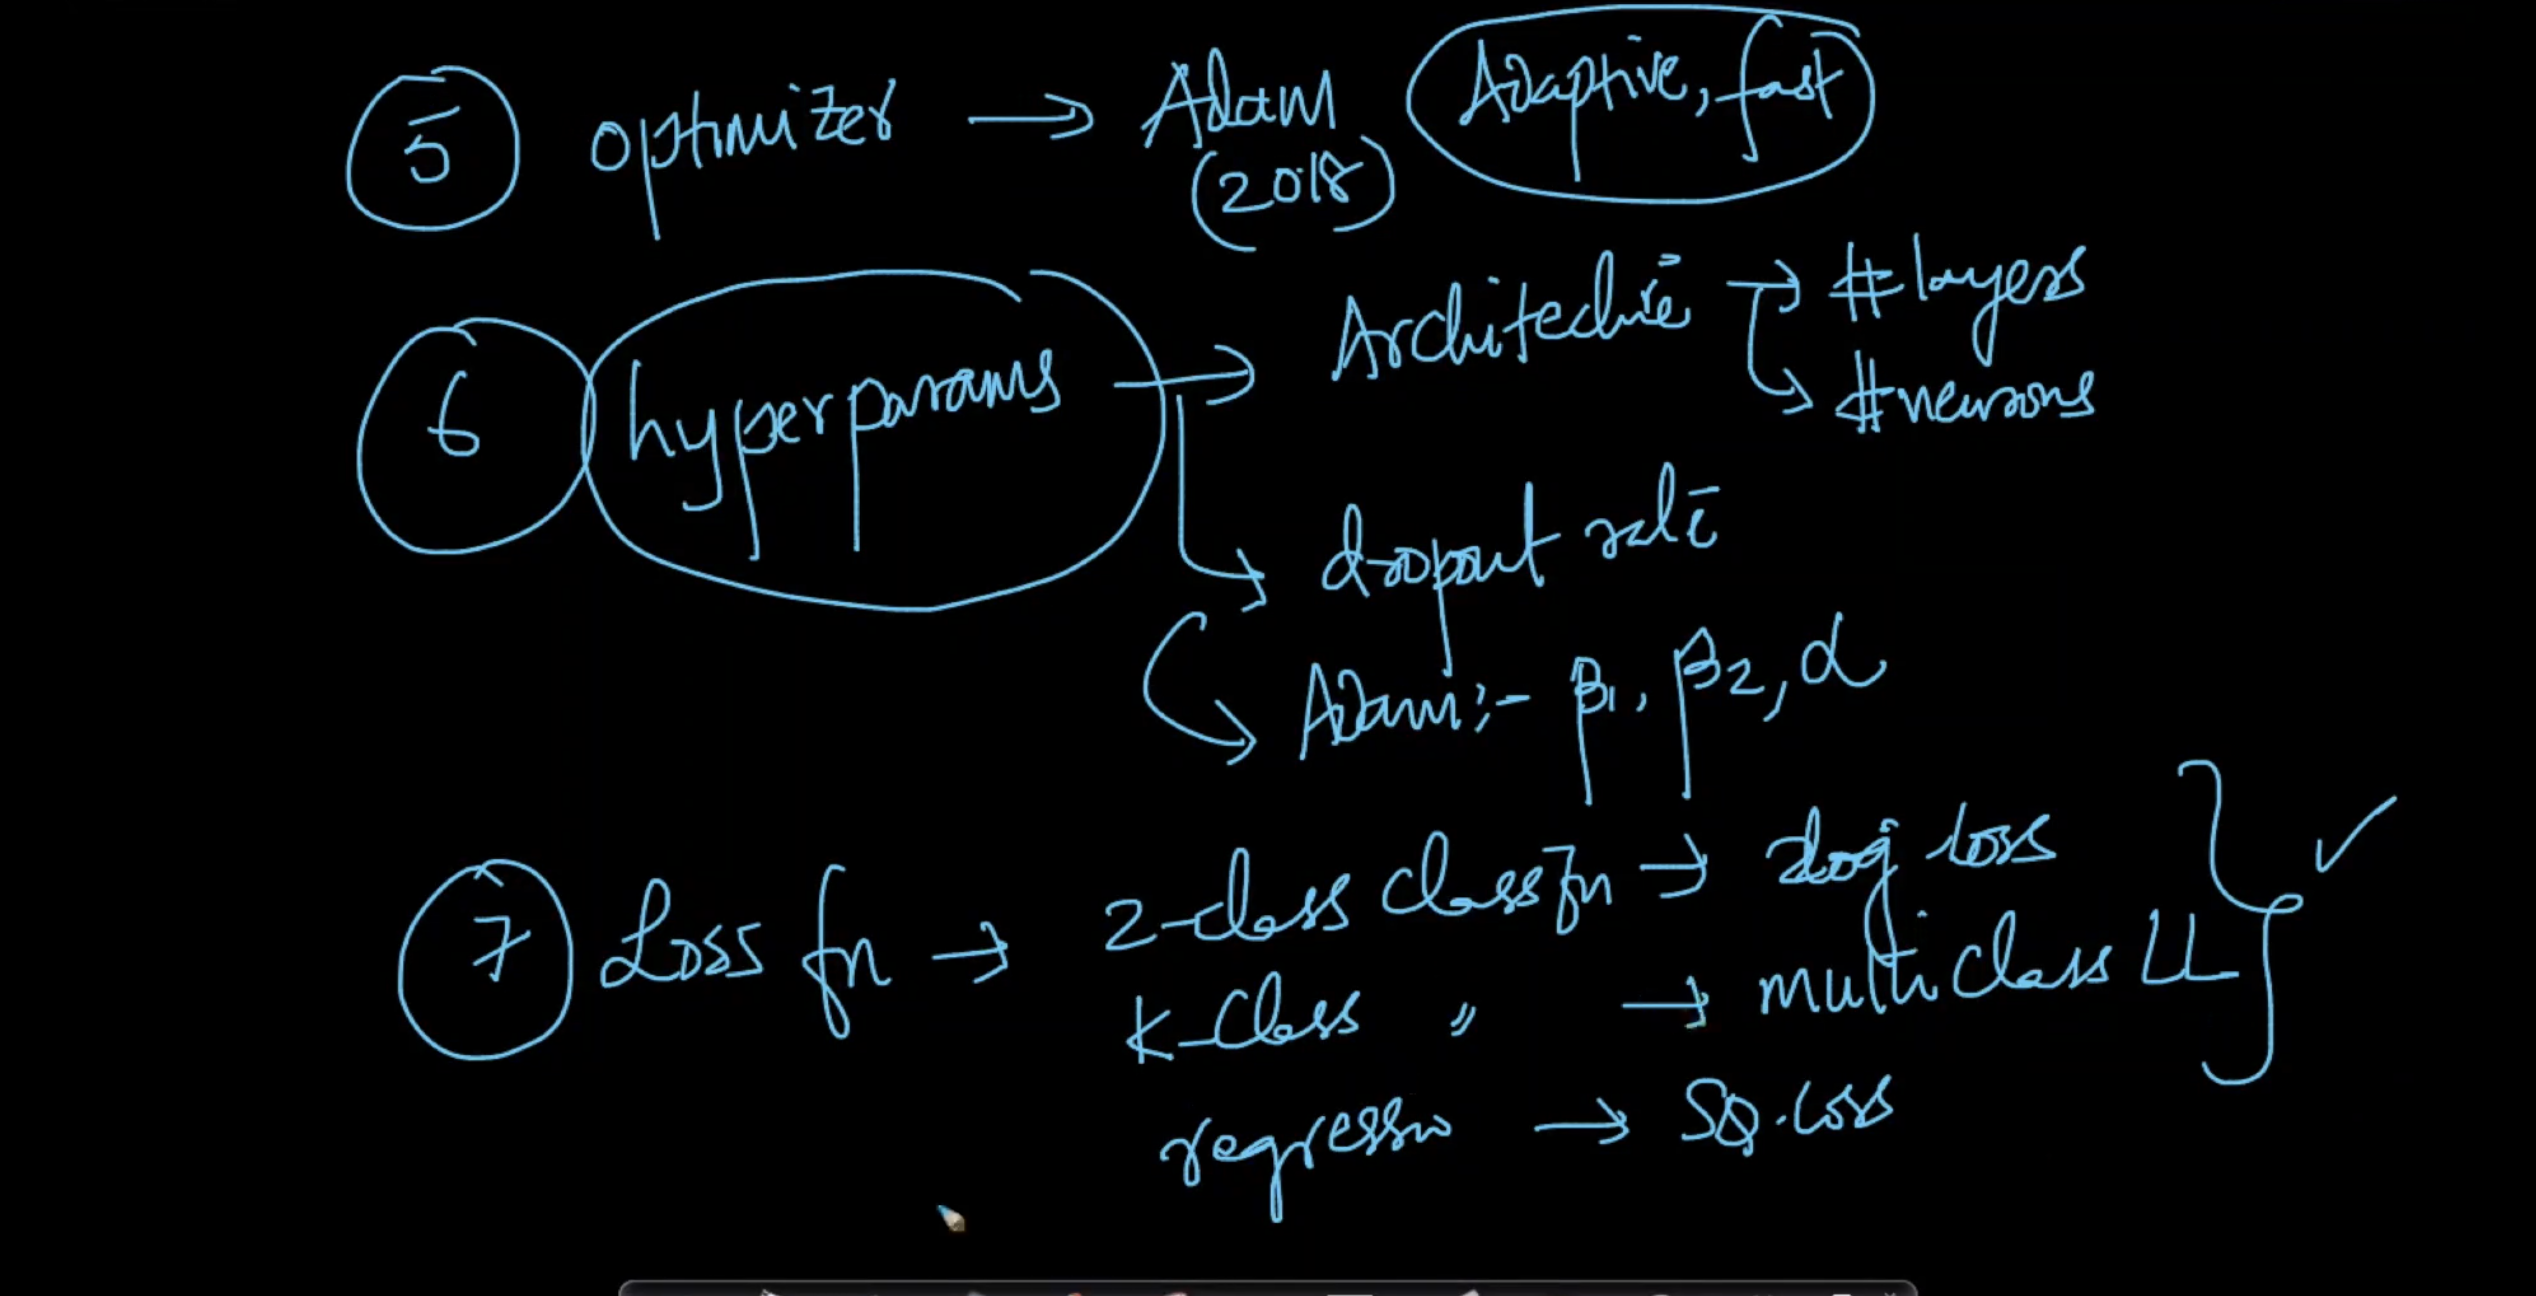 5 optimizer → Adam (2018) Adaptive, fast
6 hyperparams → Architecture → #layers
→ #neurons
→ dropout rate
→ Adam:- β1, β2, α
7 Loss fn → 2-class classfn → log loss
K-Class " → multi class LL
regression → SQ. loss